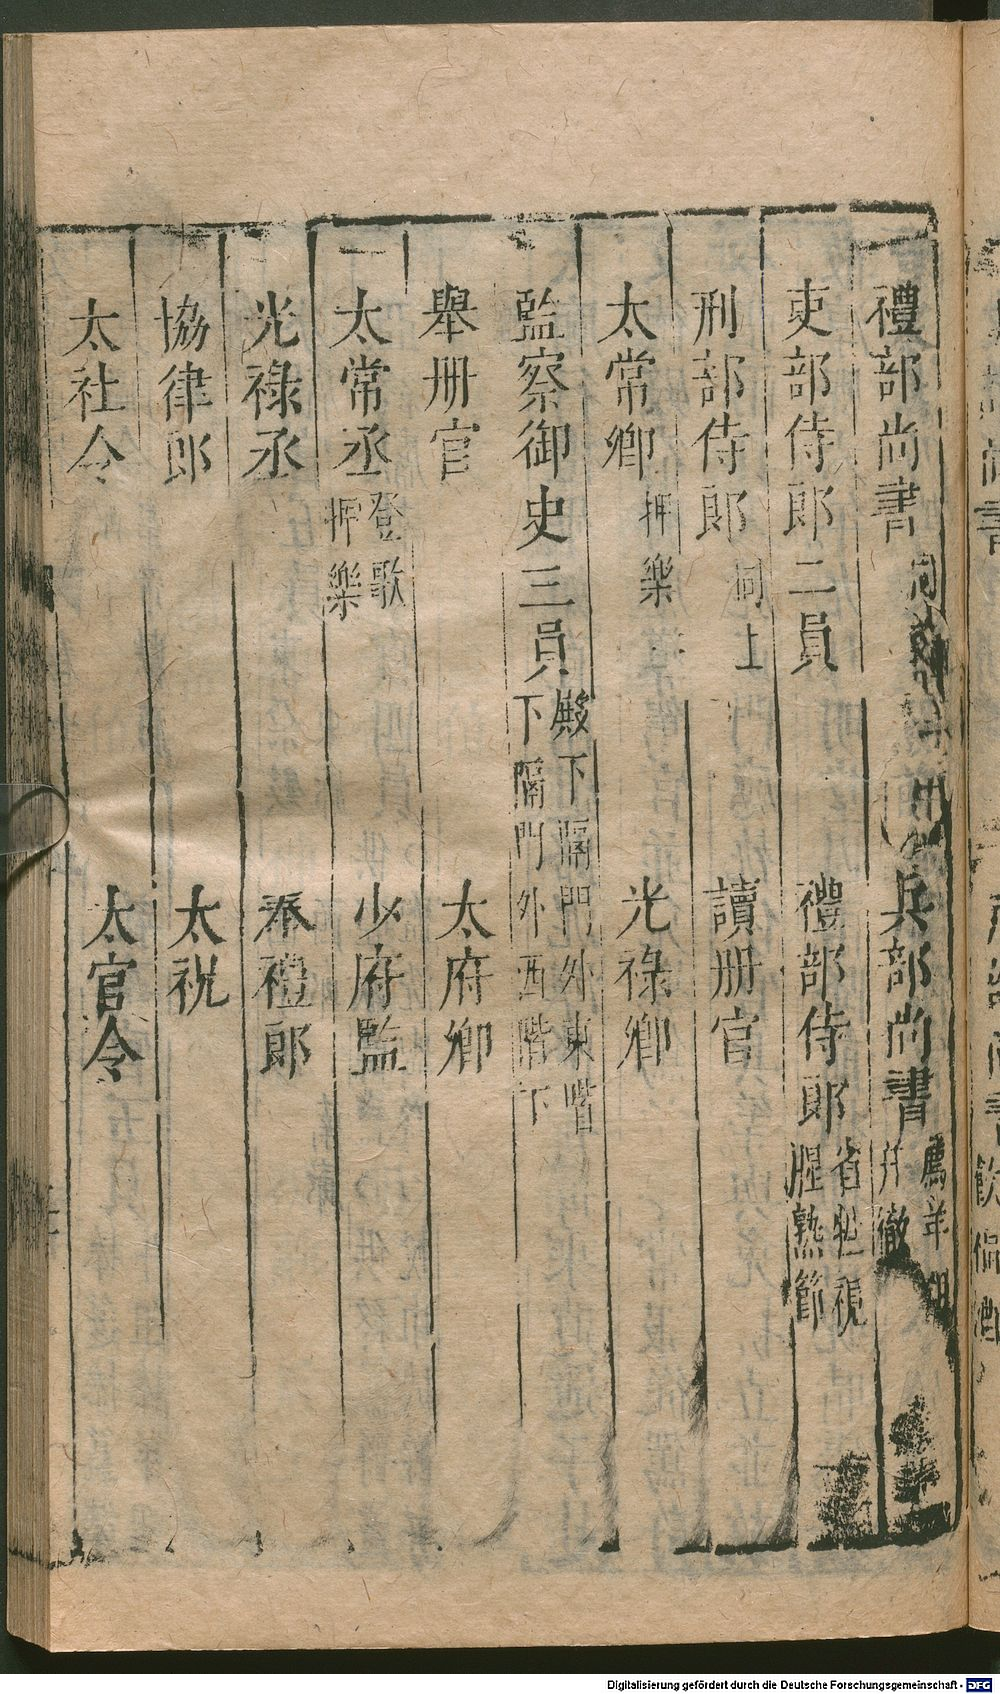 禮部尚書 兵部尚書 薦羊俎并徹
吏部侍郎二員 禮部侍郎 省牲視腥熟節
刑部侍郎 同上 讀册官
太常卿 押樂 光祿卿
監察御史三員 殿下隔門外東階下隔門外西階下
舉册官 太府卿
太常丞 登歌押樂 少府監
光祿丞 奉禮郎
協律郎 太祝
太社令 太官令
Digitalisierung gefördert durch die Deutsche Forschungsgemeinschaft - DFG